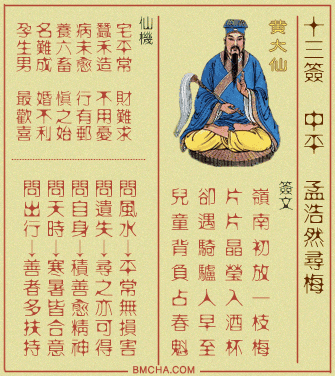 十三簽 中平 孟浩然尋梅
黃大仙
簽文
嶺南初放一枝梅
片片晶瑩入酒杯
卻遇騎驢人早至
兒童背負占春魁
仙機
宅平常 財難求
蠶禾造 不用憂
病未愈 行有郵
養六畜 慎之始
名難成 婚不利
孕生男 最歡喜
問風水→平常無損害
問遺失→尋之亦可得
問自身→積善愈精神
問天時→寒暑皆合意
問出行→善者多扶持
BMCHA.COM